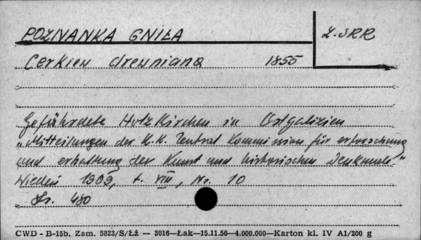 POZNANKA GNIŁA
Z.SRR
Cerkiew drewniana 1855
Gefährdete Holzkirchen in Ostgalizien
"Mitteilungen der K.K. Zentral Kommission für erforschung
und erhaltung der Kunst und historischen Denkmale"
Wiedeń 1909, t. VIII, Nr. 10
str. 480
CWD - B-15b. Zam. 5823/S/Łż — 3016—Łak—15.11.56—4.000.000—Karton kl. IV A1/200 g